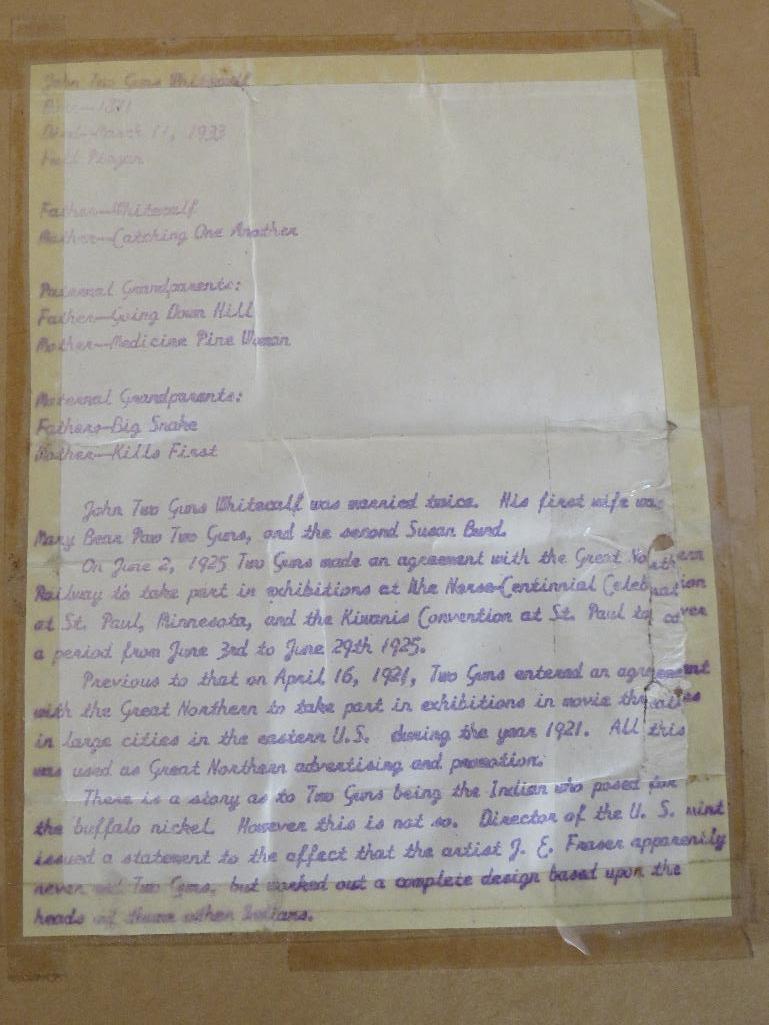 John Two Guns Whitecalf
Born—1871
Died—March 11, 1933
Full Piegan
Father—Whitecalf
Mother—Catching One Another
Paternal Grandparents:
Father—Going Down Hill
Mother—Medicine Pine Woman
Maternal Grandparents:
Fathers-Big Snake
Mother—Kills First
John Two Guns Whitecalf was married twice. His first wife was
Mary Bear Paw Two Guns, and the second Susan Burd.
On June 2, 1925 Two Guns made an agreement with the Great Northern
Railway to take part in exhibitions at the Norse-Centinnial Celebration
at St. Paul, Minnesota, and the Kiwanis Convention at St. Paul to cover
a period from June 3rd to June 29th 1925.
Previous to that on April 16, 1921, Two Guns entered an agreement
with the Great Northern to take part in exhibitions in movie theaties
in large cities in the eastern U.S. during the year 1921. All this
was used as Great Northern advertising and promotion.
There is a story as to Two Guns being the Indian who posed for
the buffalo nickel. However this is not so. Director of the U. S. mint
issued a statement to the affect that the artist J. E. Fraser apparently
never met Two Guns, but worked out a complete design based upon the
heads of three other Indians.